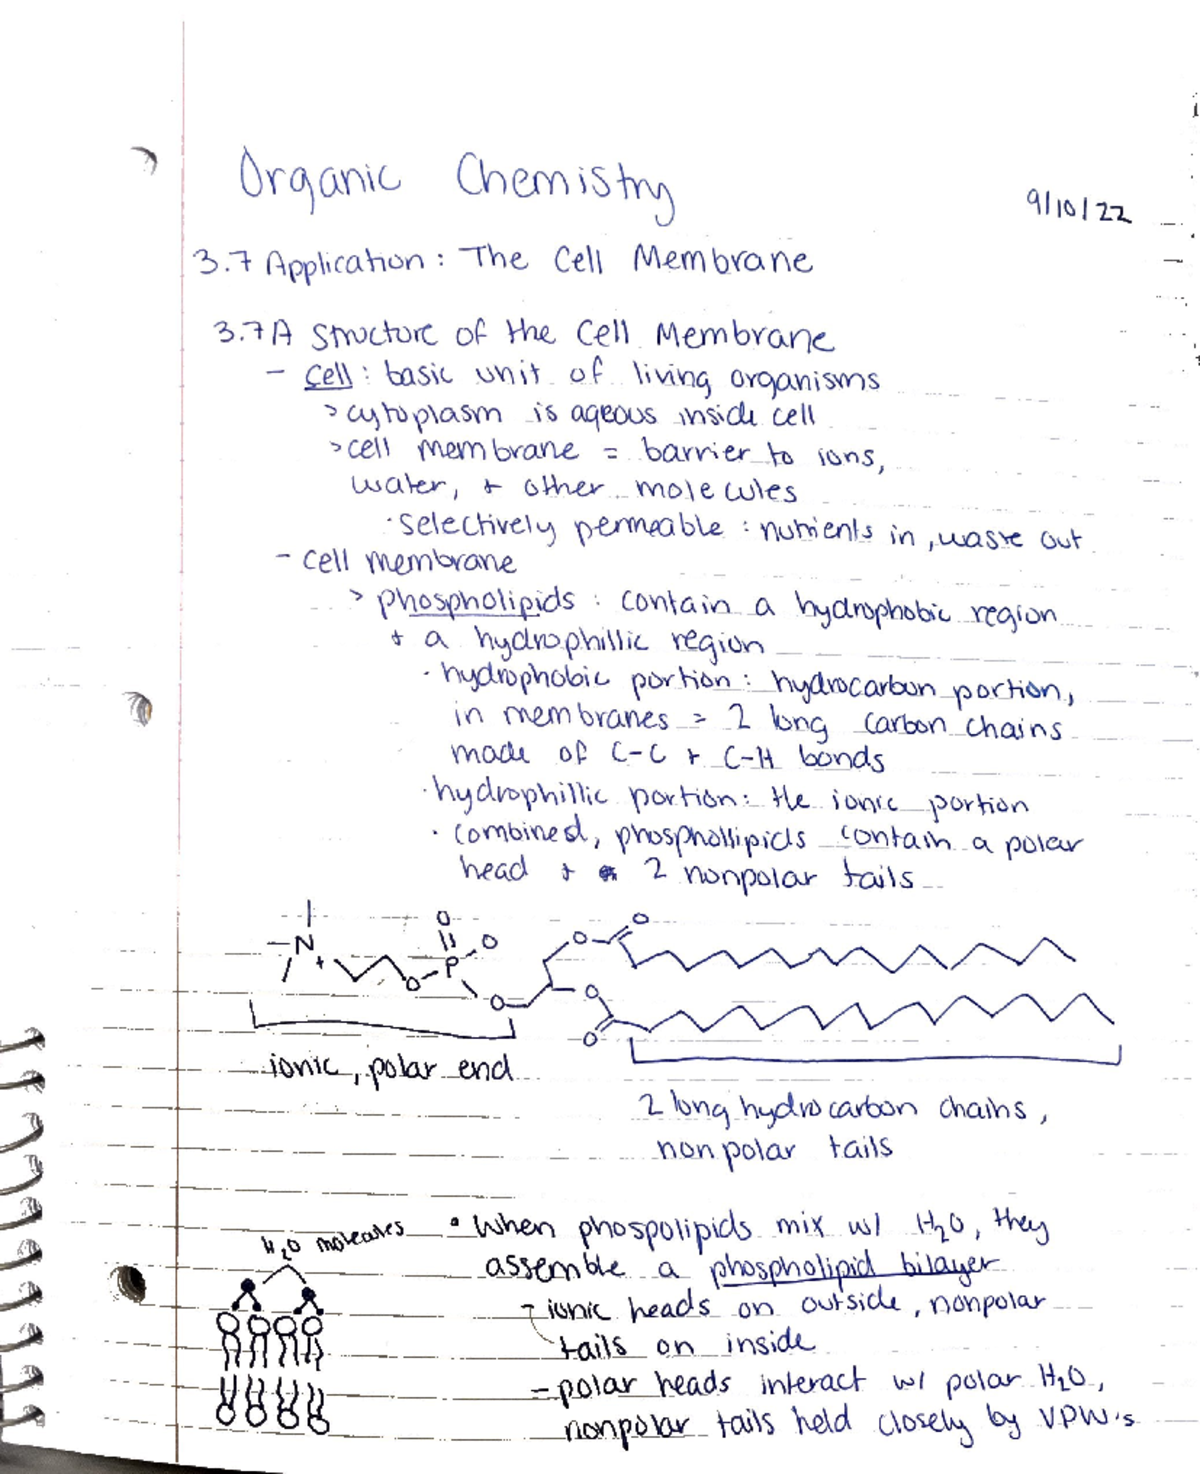 Organic Chemistry
9/10/22
3.7 Application: The Cell Membrane
3.7A Structure of the Cell Membrane
- cell: basic unit of living organisms
> cytoplasm is aqeous inside cell
> cell membrane = barrier to ions,
water, + other molecules
· selectively permeable: nutrients in, waste out
- cell membrane
> phospholipids: contain a hydrophobic region
+ a hydrophillic region
· hydrophobic portion: hydrocarbon portion,
in membranes = 2 long carbon chains
made of C-C + C-H bonds
· hydrophillic portion: the ionic portion
· combined, phosphollipids contain a polar
head + 2 nonpolar tails
N + O P O O O O O O O
ionic, polar end
2 long hydrocarbon chains,
nonpolar tails
H₂O molecules
· When phospolipids mix w/ H₂O, they
assemble a phospholipid bilayer
- ionic heads on outside, nonpolar
tails on inside
- polar heads interact w/ polar H₂O,
nonpolar tails held closely by VDW's